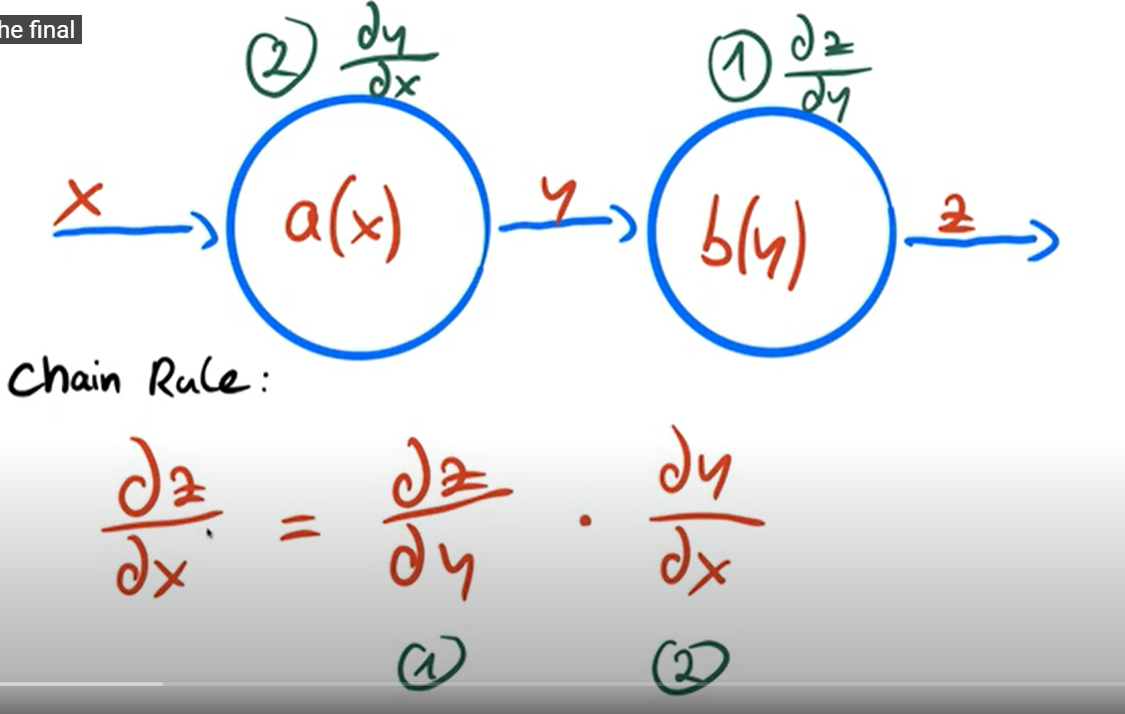 he final
② ∂y/∂x ① ∂z/∂y
x a(x) y b(y) z
Chain Rule:
∂z/∂x = ∂z/∂y · ∂y/∂x
① ②